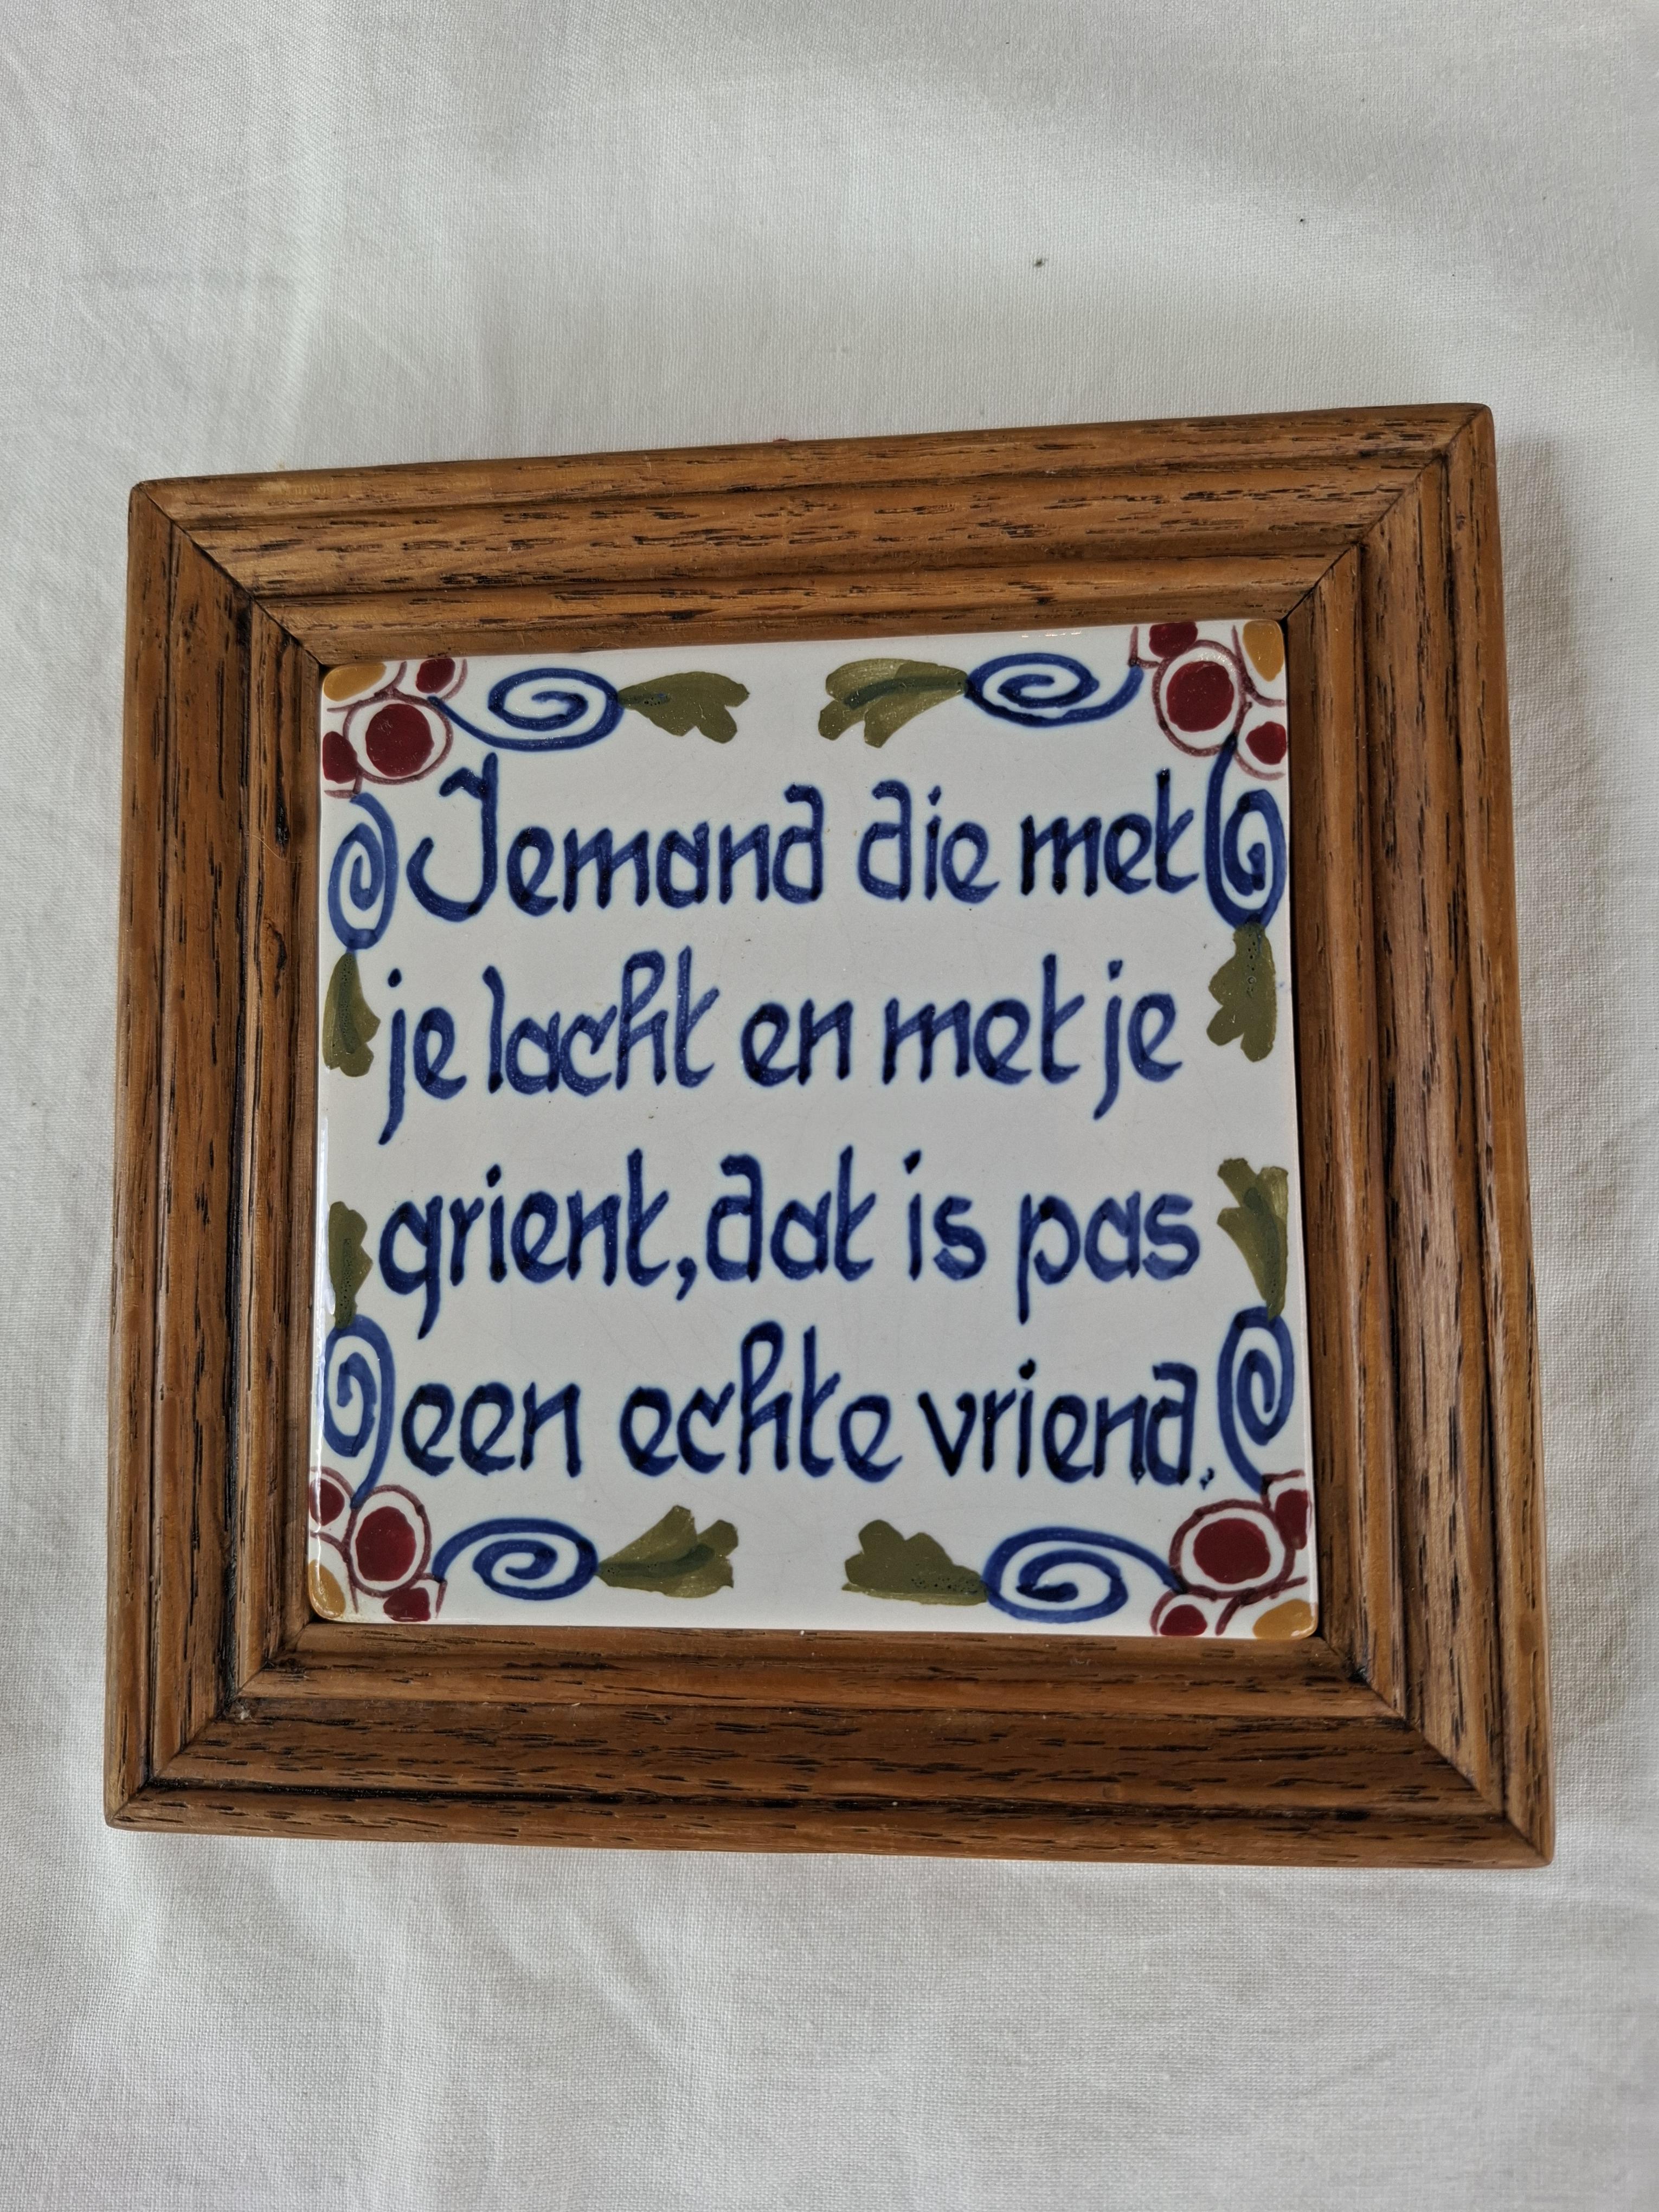 Iemand die met
je lacht en met je
grient, dat is pas
een echte vriend.